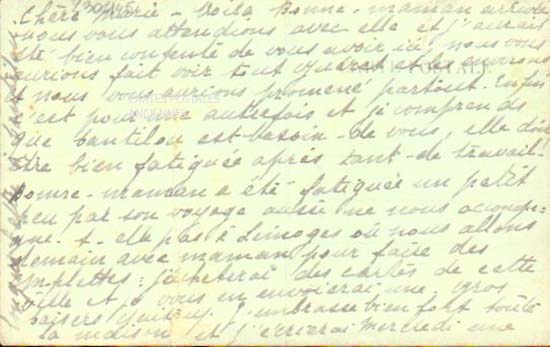 Chère Marie - Voilà Bonne-maman arrivée
nous vous attendions avec elle et j'aurais
été bien contente de vous avoir ici, nous vous
aurions fait voir tout et les environs
et nous vous aurions promené partout. Enfin
c'est pour une autrefois et je comprends
que tantilou est besoin - de vous, elle doit
être bien fatiguée après tant - de travail.
Bonne-maman a été fatiguée un petit
peu par son voyage aussi ne nous accompa-
gne-t-elle pas à Limoges où nous allons
demain avec maman pour faire des
emplettes : j'achèterai des cartes de cette
ville et je vous en enverrai une. gros
baisers J'embrasse bien fort toute
la maison et j'écrirai Mercredi une
CARTE POSTALE
CARTES POSTALES
ANCIENNES